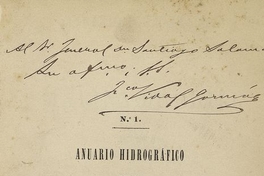 Al Sr. General dn Santiago Salam
Su afmo. S.S.
Fco. Vidal Gormaz
N.º 1.
ANUARIO HIDROGRÁFICO